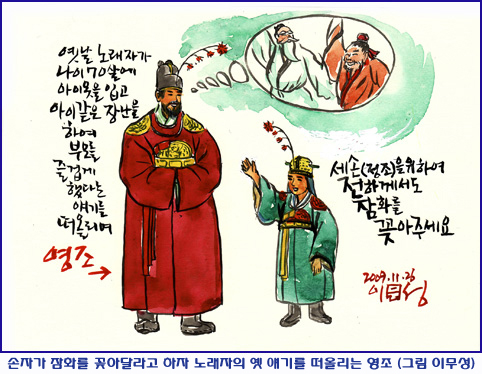 옛날 노래자가
나이 70살에
아이옷을 입고
아이같은 장난을
하여
부모를
즐겁게
했다는
얘기를
떠올리며
영조
세손(정조)을위하여
전하께서도
잠화를
꽂아주세요
2009.11.26
손자가 잠화를 꽂아달라고 하자 노래자의 옛 얘기를 떠올리는 영조 (그림 이무성)